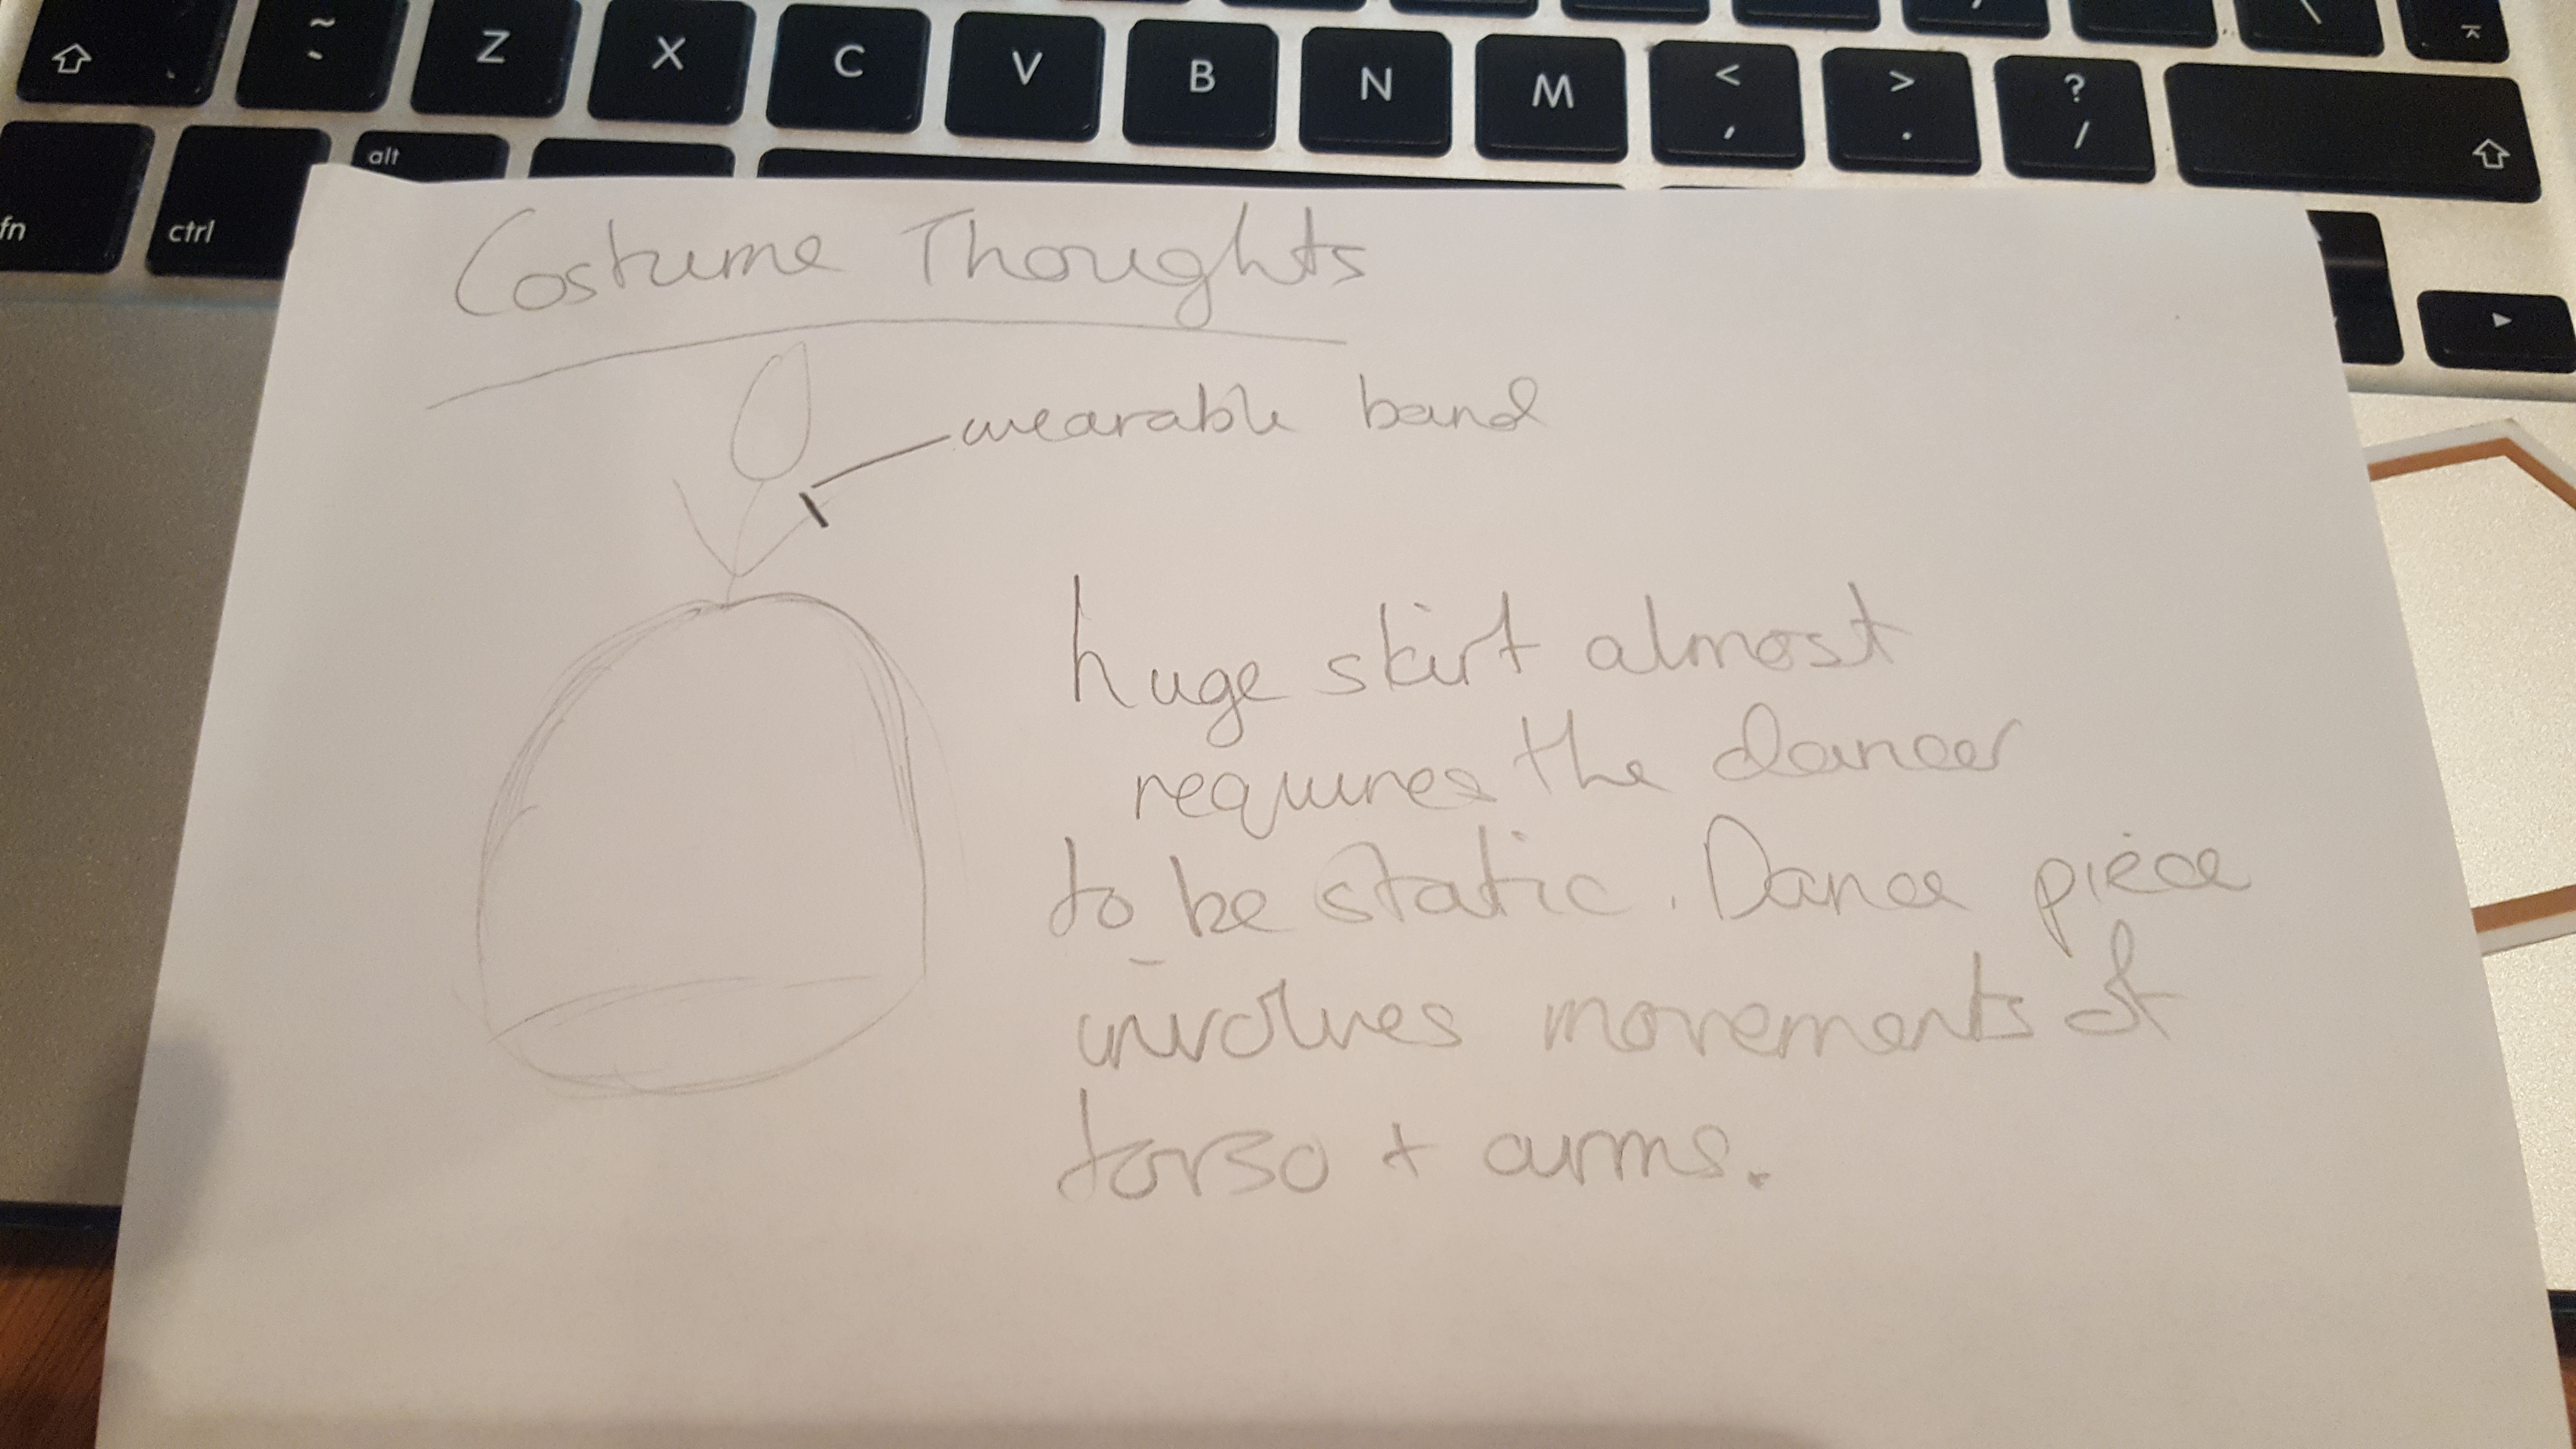 ~
` Z X C V B N M < , > . ? /
fn ctrl alt
Costume Thoughts
wearable band
huge skirt almost
requires the dancer
to be static. Dance piece
involves movements of
torso + arms.